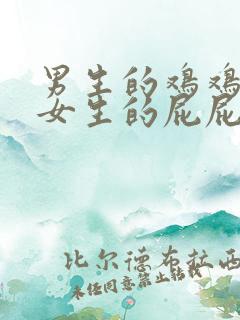 男生的鸡鸡
女生的屁屁
比尔德布拉西
未经同意禁止转载